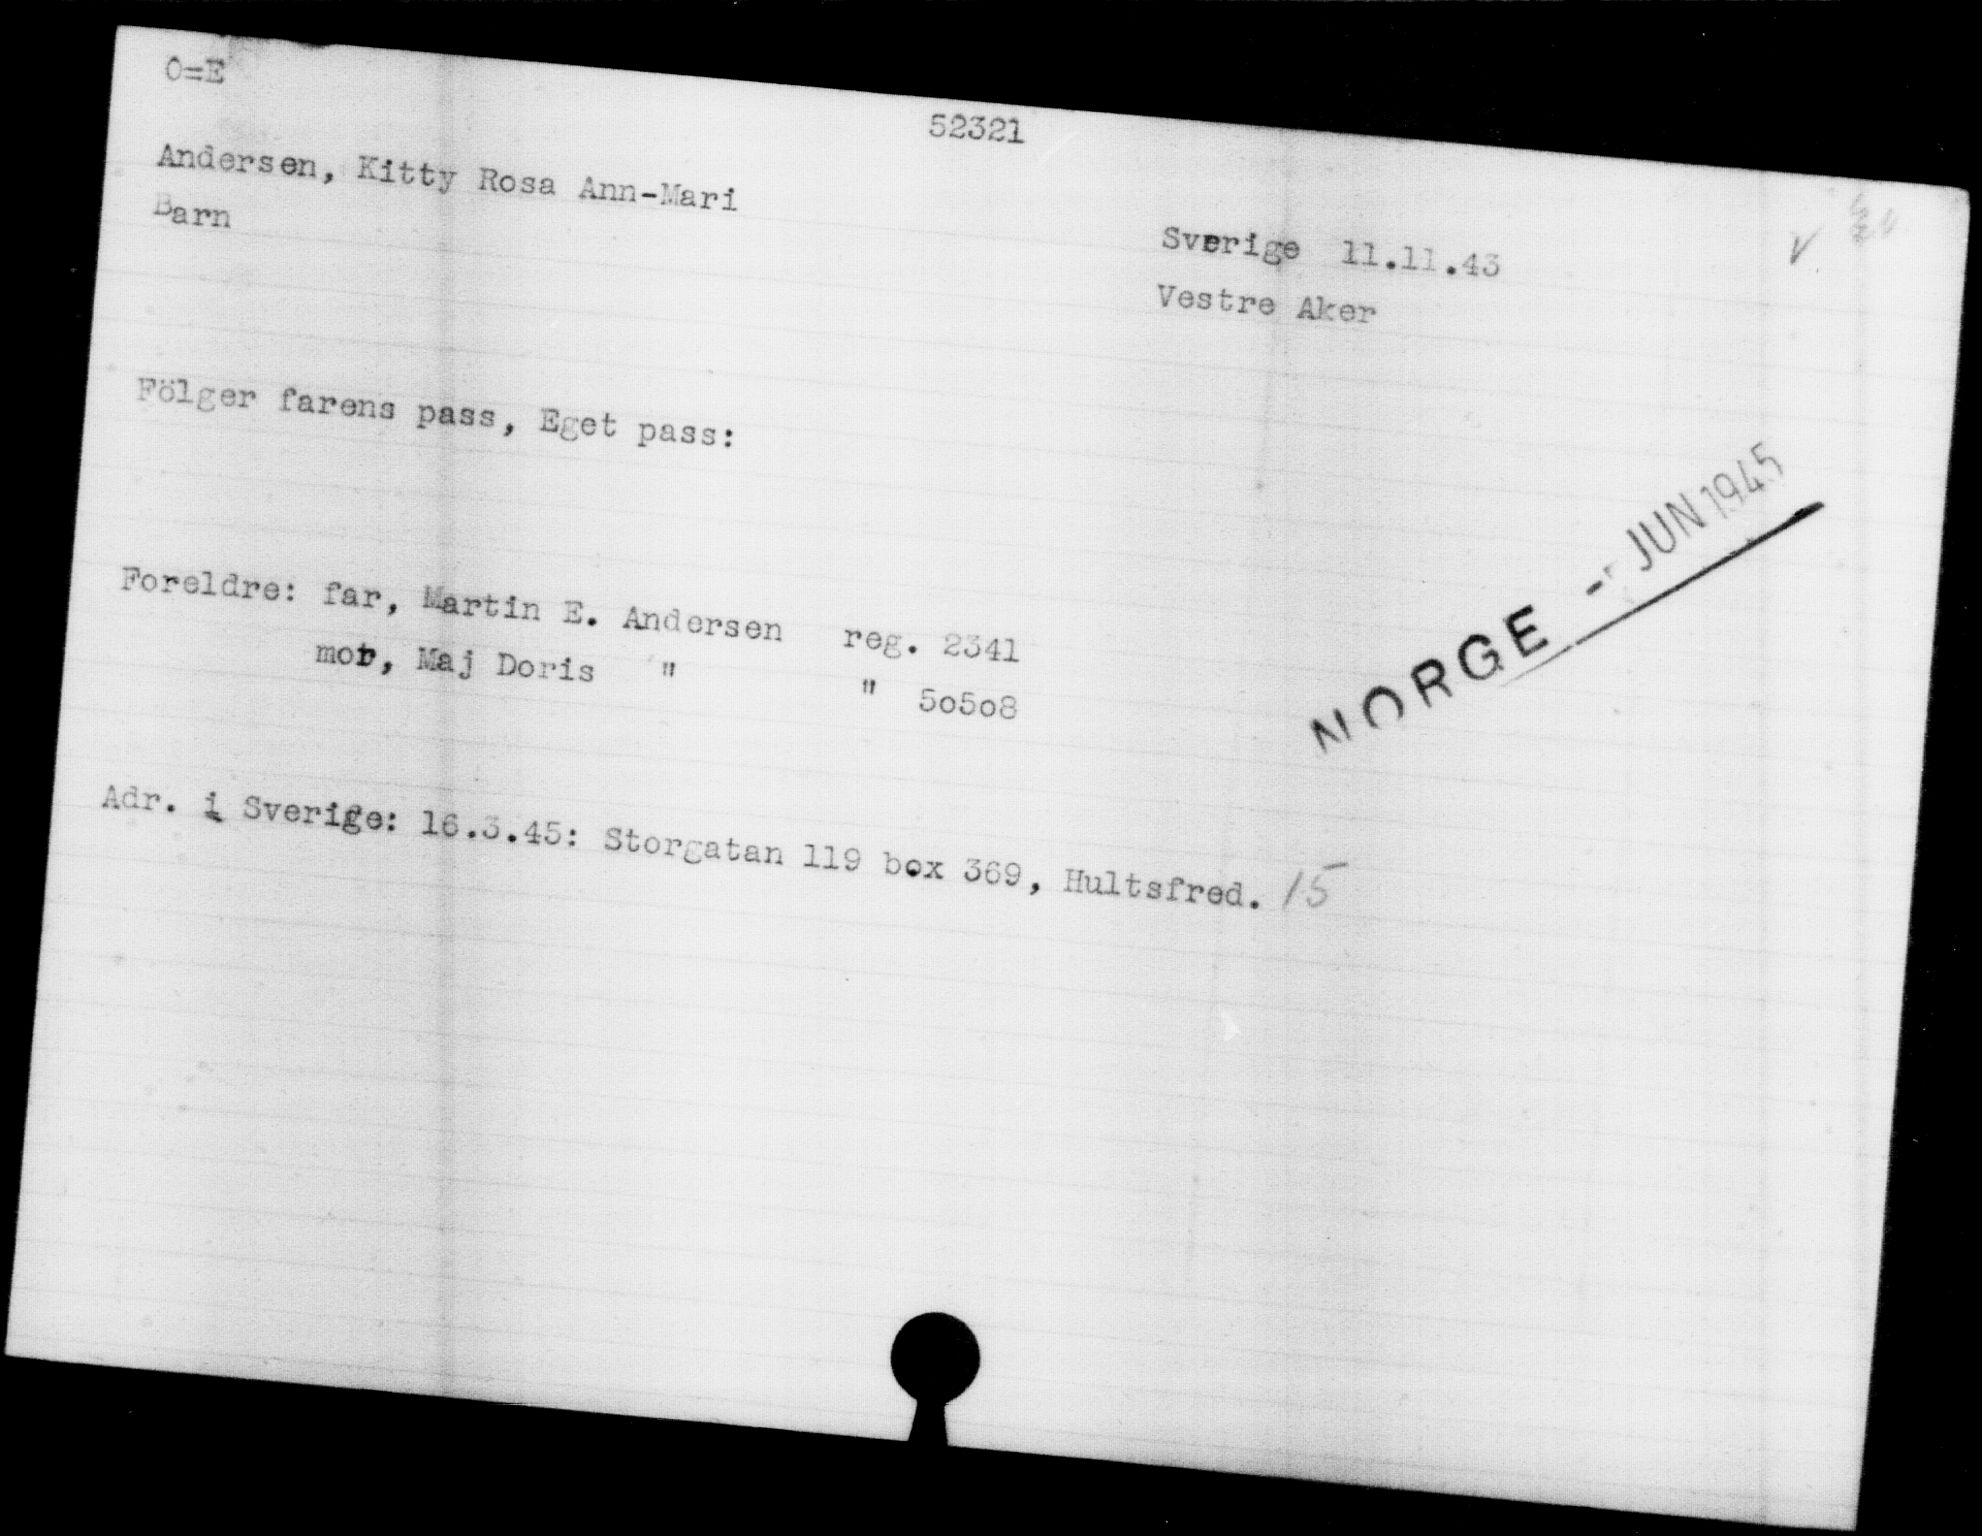 O=E
52321
Andersen, Kitty Rosa Ann-Mari
Barn
Sverige 11.11.43
Vestre Aker
Fölger farens pass, Eget pass:
NORGE - JUN 1945
Foreldre: far, Martin E. Andersen reg. 2341
mor, Maj Doris " " 5o5o8
Adr. i Sverige: 16.3.45: Storgatan 119 box 369, Hultsfred. 15